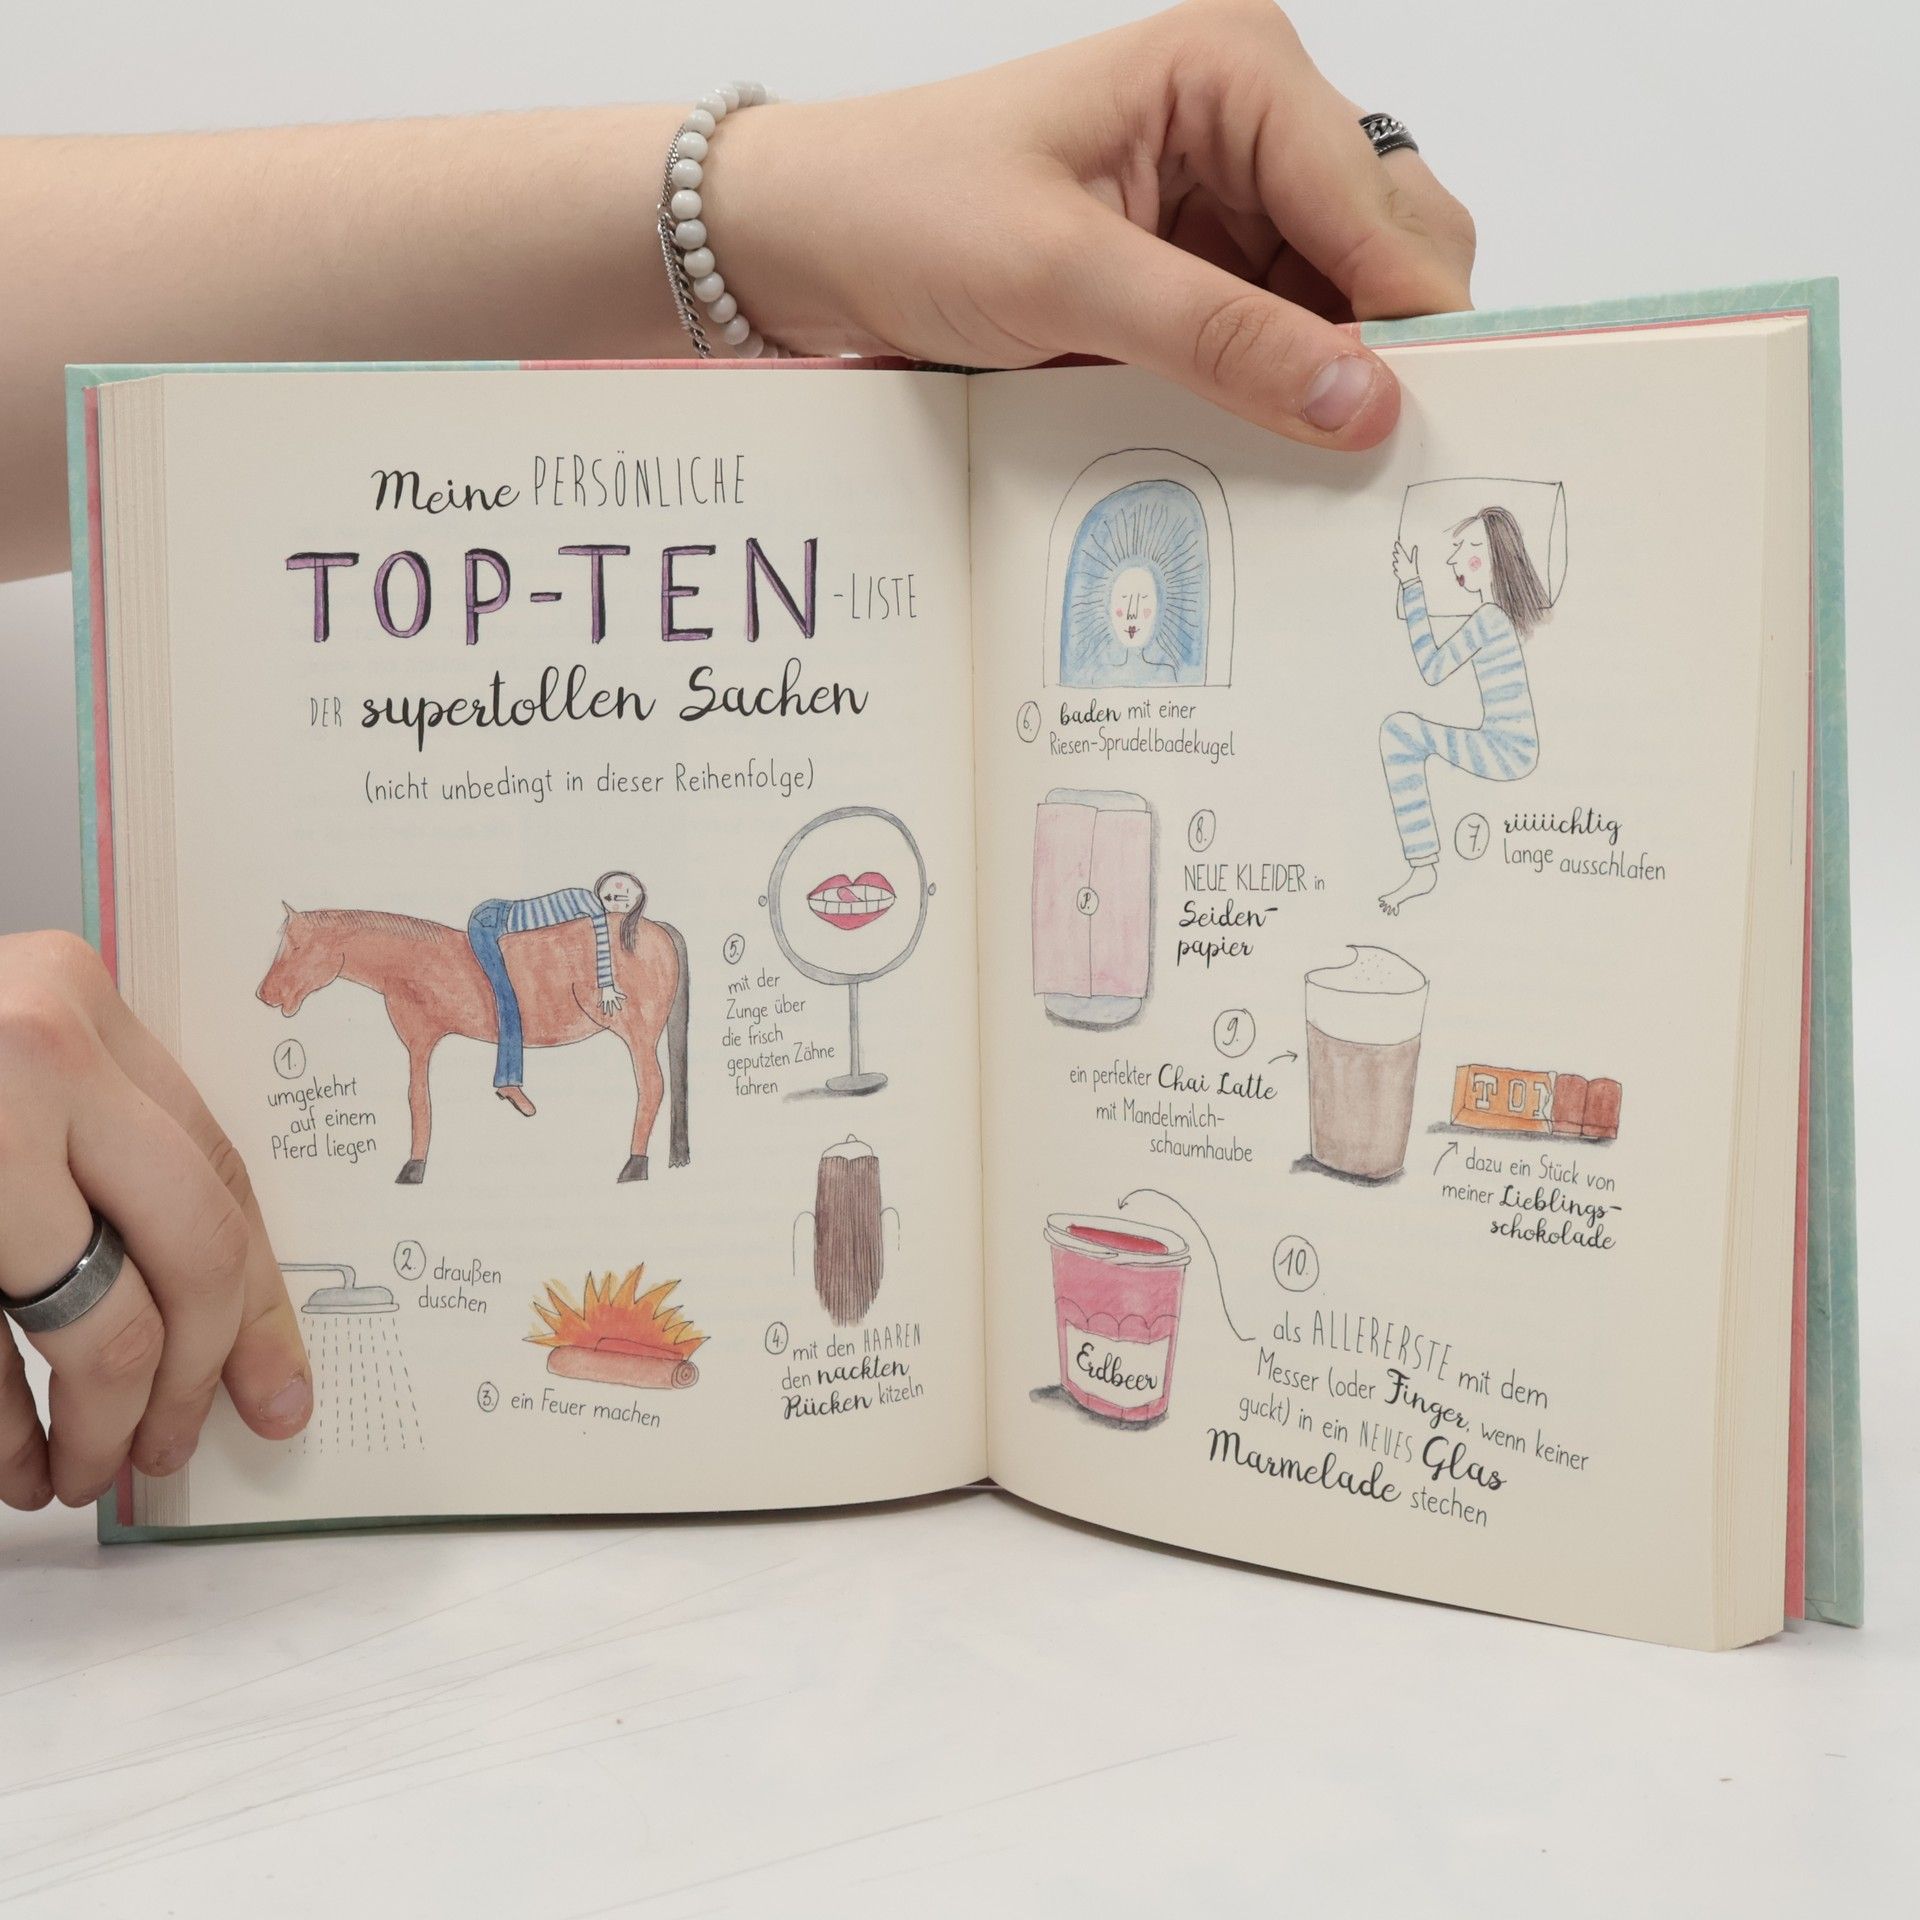 Meine PERSÖNLICHE
TOP-TEN-LISTE
DER supertollen Sachen
(nicht unbedingt in dieser Reihenfolge)
1.
umgekehrt
auf einem
Pferd liegen
2. draußen
duschen
3. ein Feuer machen
4. mit den HAAREN
den nackten
Rücken kitzeln
5.
mit der
Zunge über
die frisch
geputzten Zähne
fahren
6. baden mit einer
Riesen-Sprudelbadekugel
7. riiiiichtig
lange ausschlafen
P.
8.
NEUE KLEIDER in
Seiden-
papier
9.
ein perfekter Chai Latte
mit Mandelmilch-
schaumhaube
TON
dazu ein Stück von
meiner Lieblings-
schokolade
Erdbeer
10.
als ALLERERSTE mit dem
Messer (oder Finger, wenn keiner
guckt) in ein NEUES Glas
Marmelade stechen